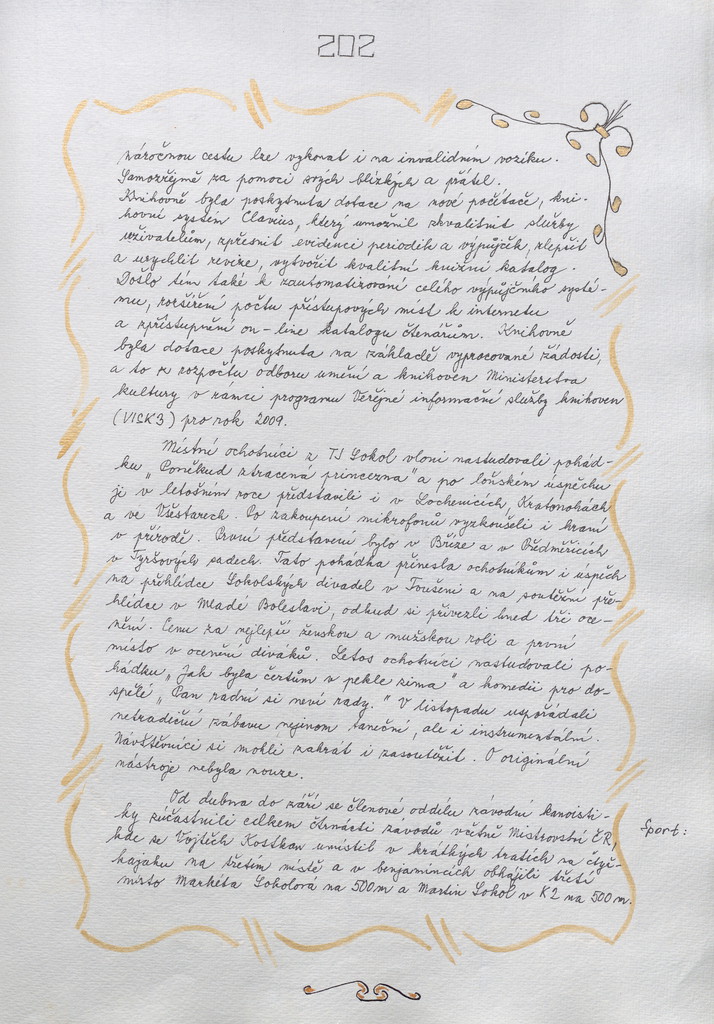 202
náročnou cestu lze vykonat i na invalidním vozíku.
Samozřejmě za pomoci svých blízkých a přátel.
Knihovně byla poskytnuta dotace na nové počítače, kni-
hovní systém Clavius, který umožnil zkvalitnit služby
uživatelům, zpřesnit evidenci periodik a výpůjček, zlepšit
a urychlit revize, vytvořit kvalitní knižní katalog.
Došlo tím také k zautomatizování celého výpůjčního systé-
mu, rozšíření počtu přístupových míst k internetu
a zpřístupnění on-line katalogu čtenářům. Knihovně
byla dotace poskytnuta na základě vypracované žádosti,
a to z rozpočtu odboru umění a knihoven Ministerstva
kultury v rámci programu Veřejné informační služby knihoven
(VISK3) pro rok 2009.
Místní ochotníci z TJ Sokol vloni nastudovali pohád-
ku „Poněkud ztracená princezna" a po loňském úspěchu
ji v letošním roce představili i v Lochenicích, Kratonohách
a ve Všestarech. Po zakoupení mikrofonů vyzkoušeli i hraní
v přírodě. První představení bylo v Bříze a v Předměřicích
v Tyršových sadech. Tato pohádka přinesla ochotníkům i úspěch
na přehlídce Sokolských divadel v Toušeni a na soutěžní pře-
hlídce v Mladé Boleslavi, odkud si přivezli hned tři oce-
nění. Cenu za nejlepší ženskou a mužskou roli a první
místo v ocenění diváků. Letos ochotníci nastudovali po-
hádku „Jak byla čertům v pekle zima" a komedii pro do-
spělé „Pan radní si neví rady." V listopadu uspořádali
netradiční zábavu nejenom taneční, ale i instrumentální.
Návštěvníci si mohli zahrát i zasoutěžit. O originální
nástroje nebyla nouze.
Od dubna do září se členové oddílu závodní kanoisti-
ky zúčastnili celkem čtrnácti závodů včetně Mistrovství ČR,
Sport:
kde se Vojtěch Kostkan umístil v krátkých tratích na čtyř-
kajaku na třetím místě a v benjamíncích obhájili třetí
místo Markéta Sokolová na 500 m a Martin Sokol v K2 na 500 m.